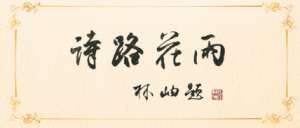 诗路花雨
林岫题